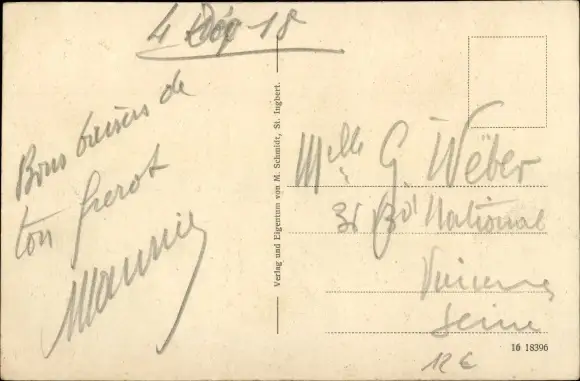 4 Déc 18
Bons baisers de
ton frerot
Maurice
Verlag und Eigentum von M. Schmidt, St. Ingbert.
Melle G. Wëber
Bd National
Vincennes
Seine
16 18396
12 €